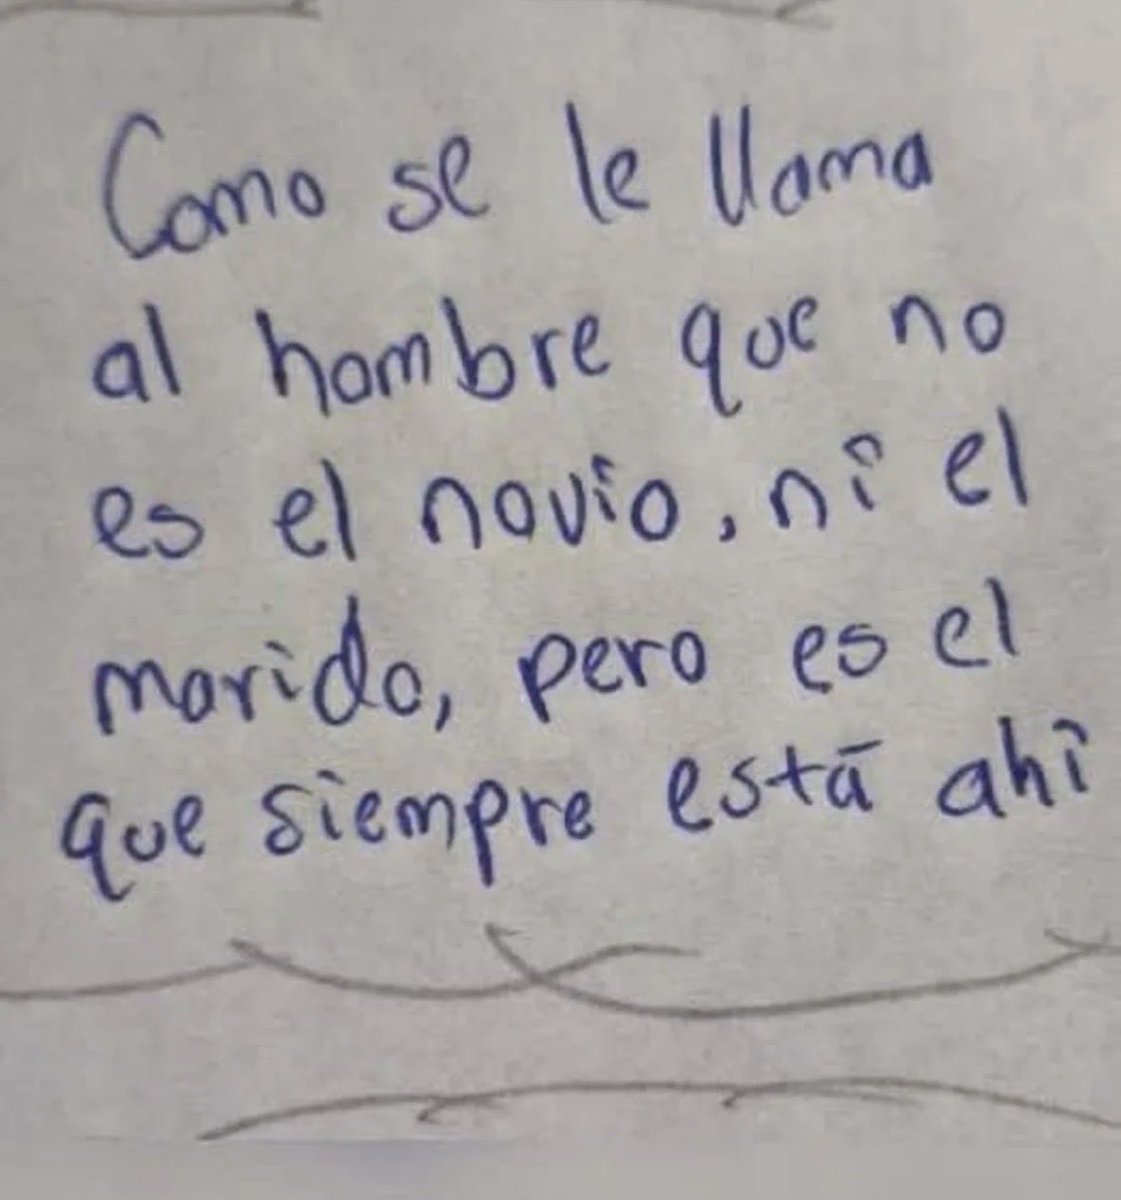 Como se le llama
al hombre que no
es el novio, ni el
marido, pero es el
que siempre está ahí